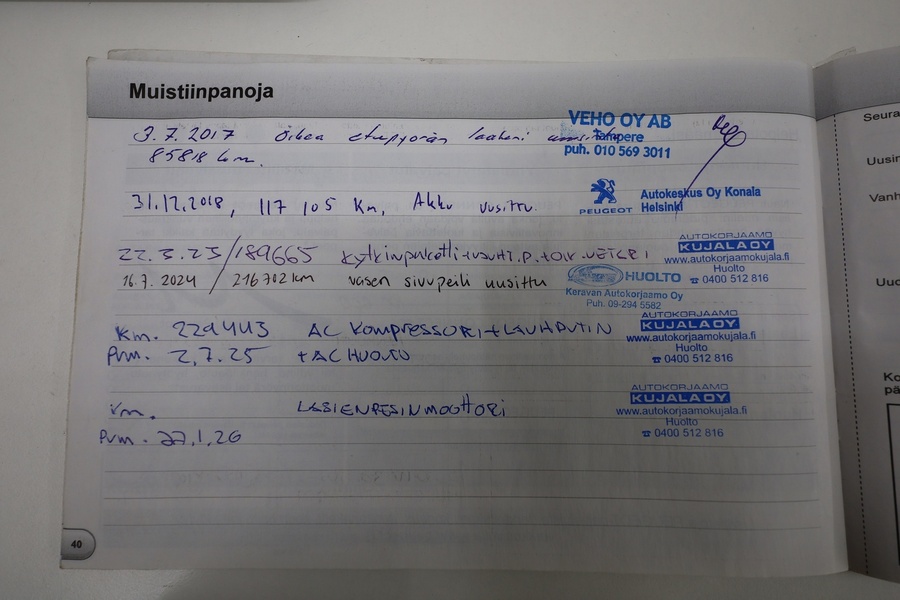 Muistiinpanoja
3.7.2017 Oikea etupyörän laakeri uusittu
85818 km.
VEHO OY AB
Tampere
puh. 010 569 3011
31.12.2018, 117 105 Km, Akku uusittu.
PEUGEOT
Autokeskus Oy Konala
Helsinki
22.3.23/189665 Kytkinpaketti+vauhtip.+oik.vetari
AUTOKORJAAMO
KUJALA OY
www.autokorjaamokujala.fi
Huolto
☎ 0400 512 816
16.7.2024 / 216 702 km vasen sivupeili uusittu
HUOLTO
Keravan Autokorjaamo Oy
Puh. 09-294 5582
Km. 229443 AC Kompressori+Lauhdutin
Pvm. 2.7.25 +AC HUOLTO
AUTOKORJAAMO
KUJALA OY
www.autokorjaamokujala.fi
Huolto
☎ 0400 512 816
Km. LASIENPESINMOOTTORI
Pvm. 22.1.26
AUTOKORJAAMO
KUJALA OY
www.autokorjaamokujala.fi
Huolto
☎ 0400 512 816
40
Seura
Uusin
Vanh
Uuc
Ko
pä